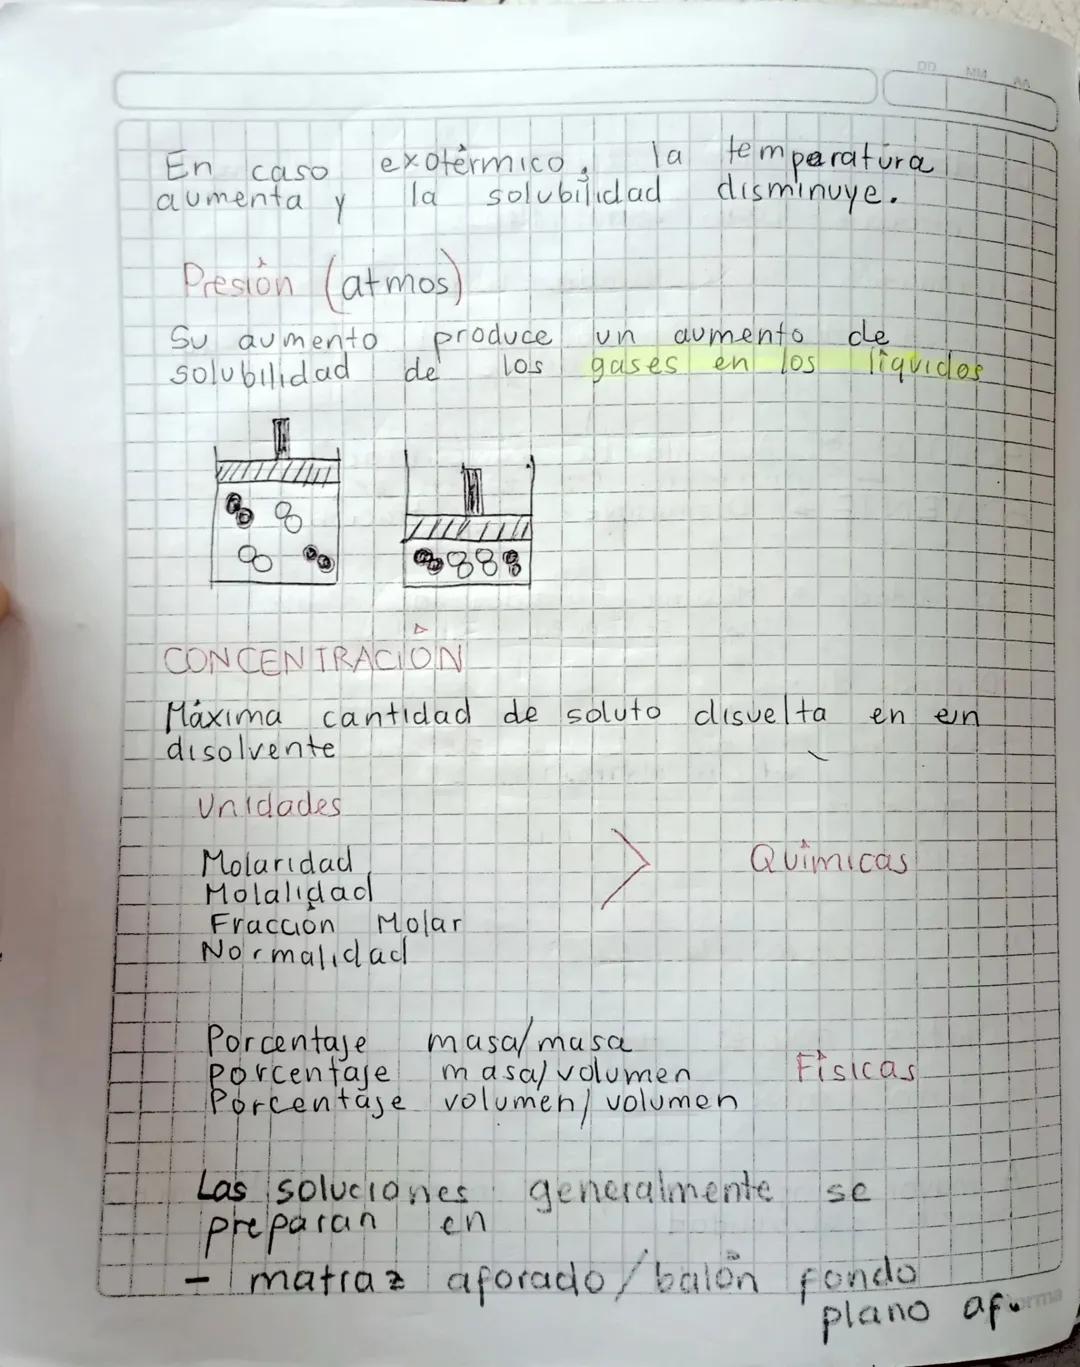 DD MM AA
En caso exotérmico, la temperatura
aumenta y la solubilidad disminuye.
Presión (atmos)
Su aumento produce un aumento de
solubilidad de los gases en los líquidos
CONCENTRACIÓN
Máxima cantidad de soluto disuelta en un
disolvente
Unidades
Molaridad
Molalidad
Fracción Molar
Normalidad
Químicas
Porcentaje masa/masa
Porcentaje masa/volumen
Porcentaje volumen/volumen
Físicas
Las soluciones generalmente se
preparan en
- matraz aforado/balón fondo
plano
norma